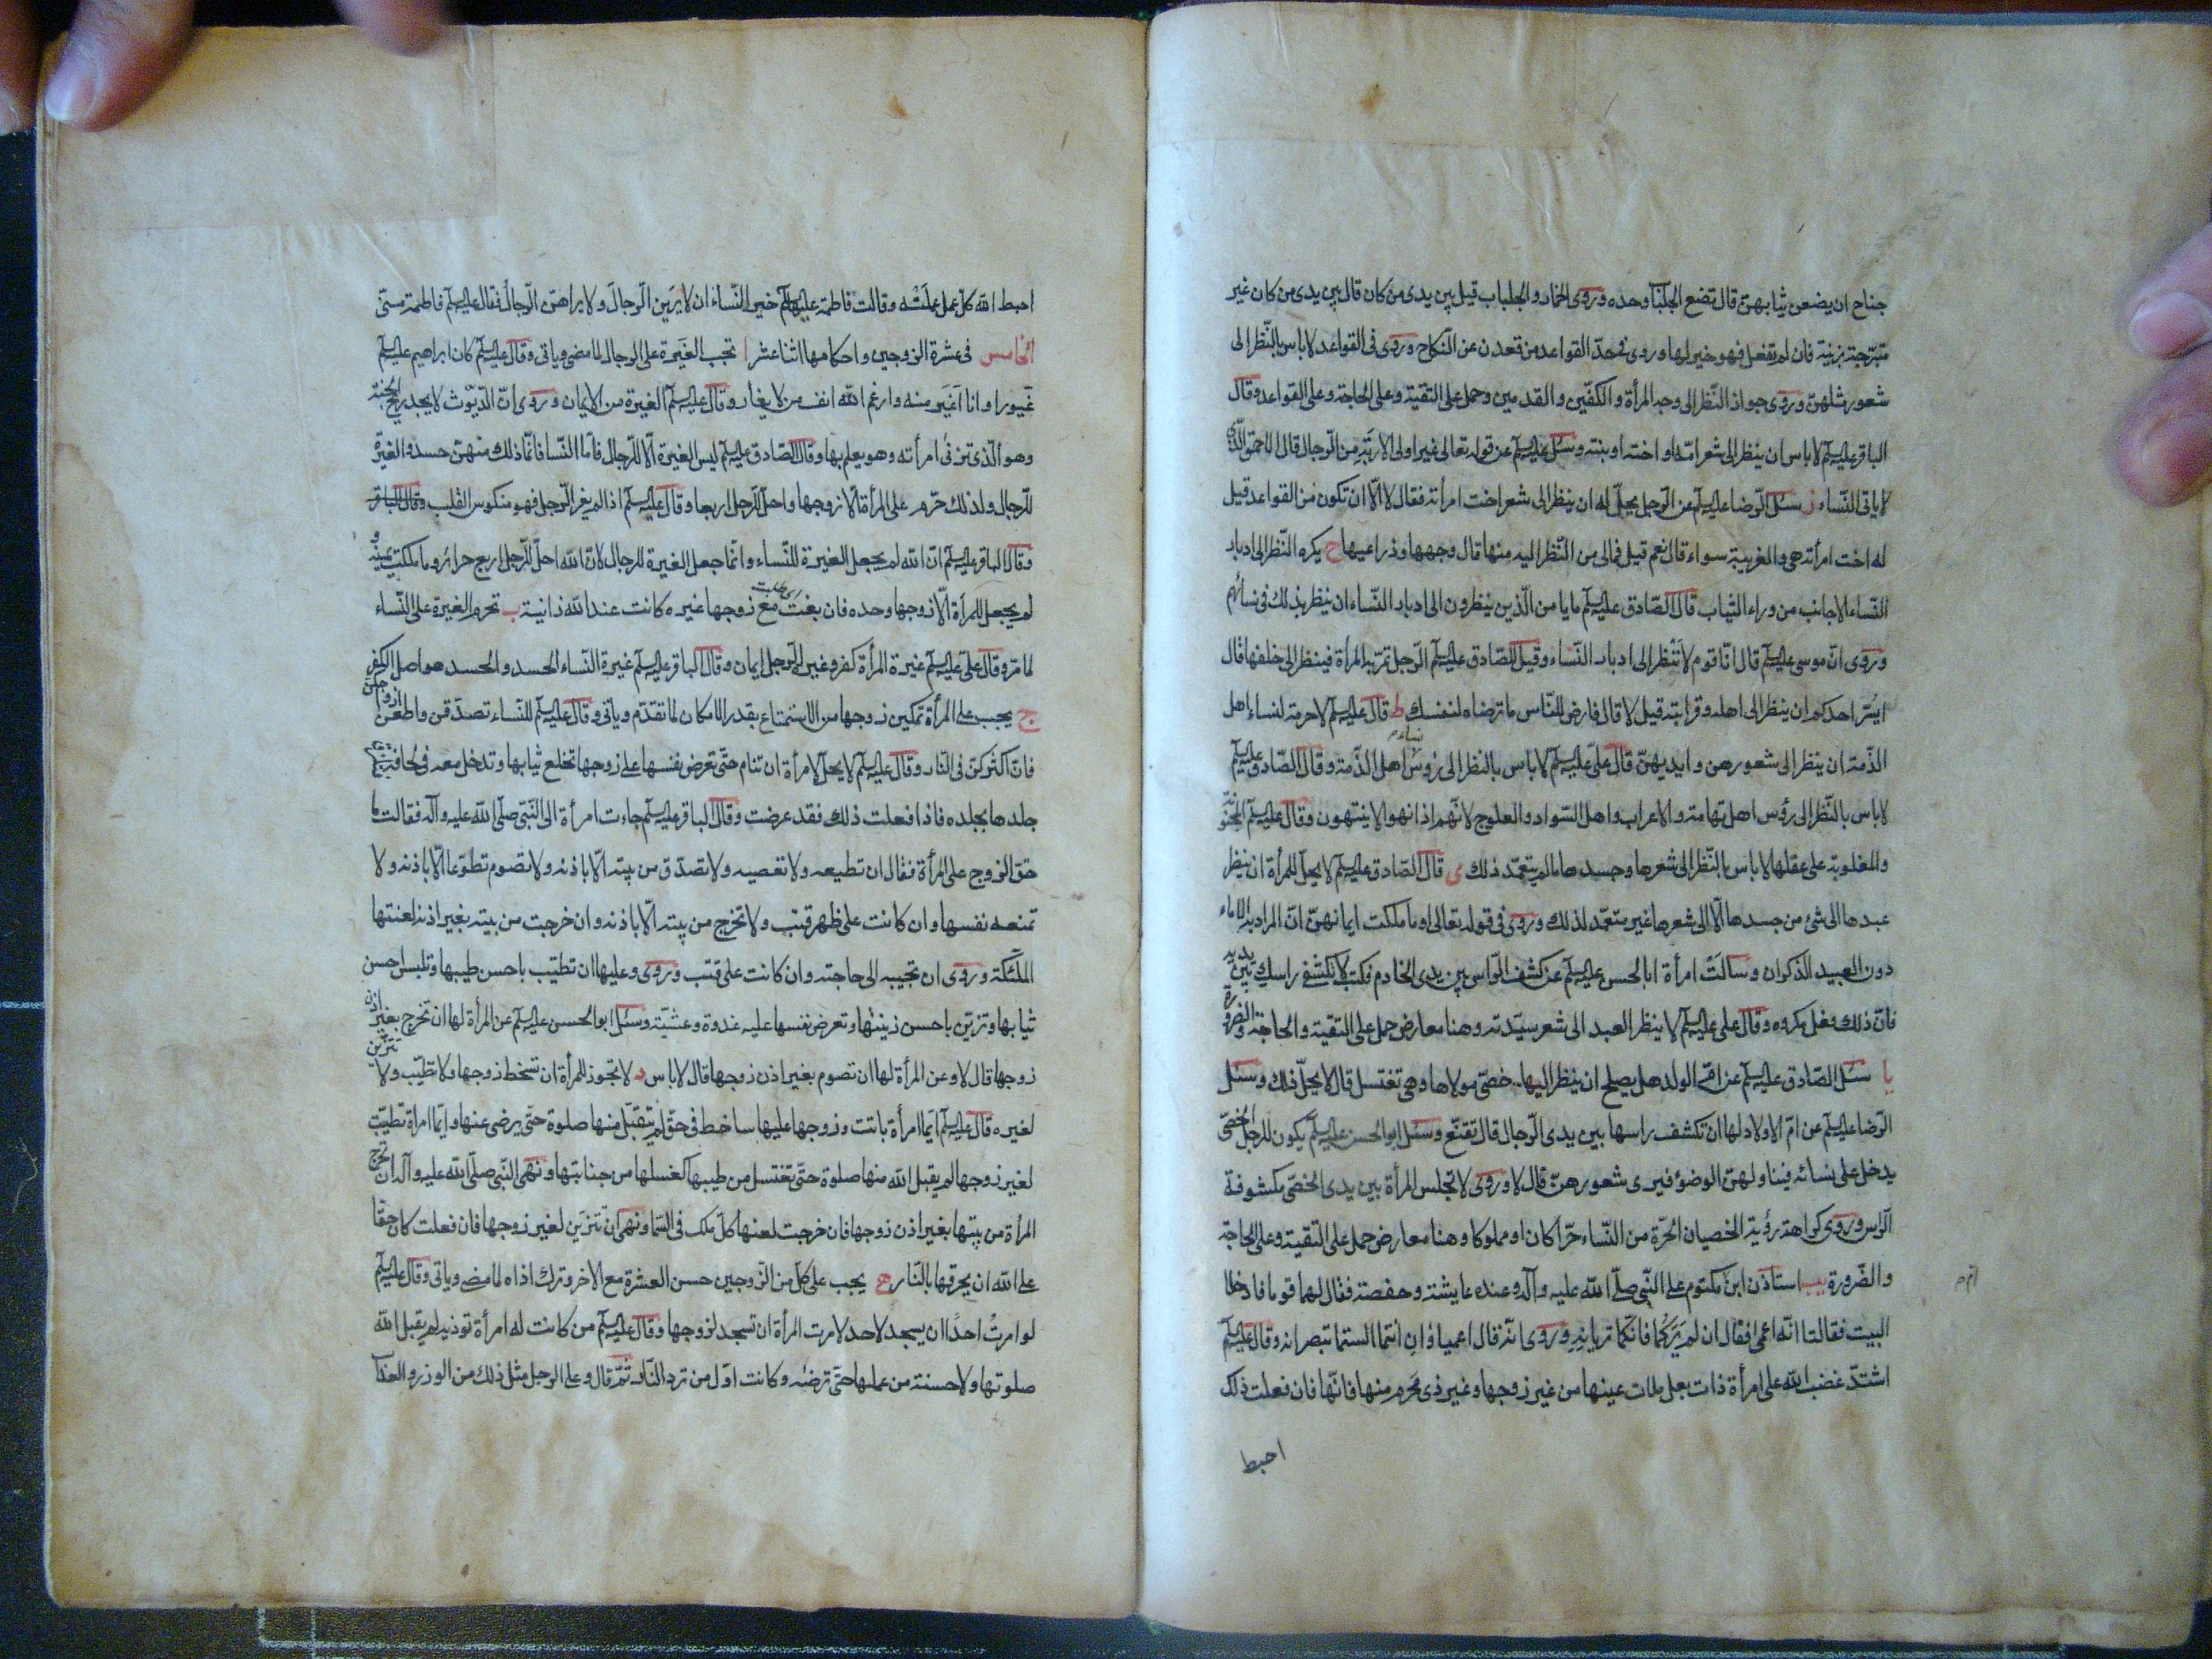 جناح ان يضعن ثيابهن قال تضع الجلباب وحده وروى الخمار والجلباب قيل بين يدى من كان قال بين يدى من كان غير
متبرجة بزينة فان لم تفعل فهو خير لها وروى فى حد القواعد من قعدن عن النكاح وروى فى القواعد لا باس بالنظر الى
شعور مثلهن وروى جواز النظر الى وجه المرأة والكفين والقدمين وحمل على التقية وعلى الحاجة وعلى القواعد وقال
الباقر عليه السلم لا باس ان ينظر الى شعر امه او اخته او بنته وسئل عليه السلم عن قوله تعالى غير اولى الاربة من الرجال قال الاحمق الذى
لا ياتى النساء ز سئل الرضا عليه السلم عن الرجل يحل له ان ينظر الى شعر اخت امرأته فقال لا الا ان تكون من القواعد قيل
له اخت امرأته هى والغريبة سواء قال نعم قيل فمالى من النظر اليه منها قال وجهها وذراعيها ح يكره النظر الى ادبار
النساء الاجانب من وراء الثياب قال الصادق عليه السلم ما يا من الذين ينظرون الى ادبار النساء ان ينظر بذلك فى نسائهم
وروى ان موسى عليه السلم قال انا قوم لا ننظر الى ادبار النساء وقيل للصادق عليه السلم الرجل تمر به المرأة فينظر الى خلفها قال
ايسر احدكم ان ينظر الى اهله وقرابته قيل لا قال فارض للناس ما ترضاه لنفسك ط قال عليه السلم لا حرمة لنساء اهل
الذمة ان ينظر الى شعورهن وايديهن قال على عليه السلم لا باس بالنظر الى رؤس نساء اهل الذمة وقال الصادق عليه السلم
لا باس بالنظر الى رؤس اهل تهامة والاعراب واهل السواد والعلوج لانهم اذا نهوا لا ينتهون وقال عليه السلم المجنونة
والمغلوبة على عقلها لا باس بالنظر الى شعرها وجسدها ما لم يتعمد ذلك ى قال الصادق عليه السلم لا يحل للمرأة ان ينظر
عبدها الى شئ من جسدها الا الى شعرها غير متعمد لذلك وروى فى قوله تعالى او ما ملكت ايمانهن ان المراد به الاماء
دون العبيد الذكران وسالت امرأة ابا الحسن عليه السلم عن كشف الراس بين يدى الخادم فكتب لا تكشفى راسك بين يديه
فان ذلك مكروه وقال على عليه السلم لا ينظر العبد الى شعر سيدته وهنا معارض حمل على التقية والحاجة والضرورة
يا سئل الصادق عليه السلم عن ام الولد هل يصلح ان ينظر اليها خصى مولاها وهى تغتسل قال لا يحل ذلك وسئل
الرضا عليه السلم عن ام الاولاد لها ان تكشف راسها بين يدى الرجال قال تقنع وسئل ابو الحسن عليه السلم يكون للرجل الخصى
يدخل على نسائه فيناولهن الوضؤ فيرى شعورهن قال لا وروى لا تجلس المرأة بين يدى الخصى مكشوفة
الراس وروى كراهة رؤية الخصيان الحرة من النساء حرا كان او مملوكا وهنا معارض حمل على التقية وعلى الحاجة
والضرورة يب استاذن ابن ام مكتوم على النبى صلى الله عليه وآله وعنده عايشة وحفصة فقال لهما قوما فادخلا
البيت فقالتا انه اعمى فقال ان لم يركما فانكما تريانه وروى انه قال اعمياوان انتما الستما تبصرانه وقال عليه السلم
اشتد غضب الله على امرأة ذات بعل ملات عينها من غير زوجها وغير ذى محرم منها فانها فان فعلت ذلك
احبط
احبط الله كل عمل عملته وقالت فاطمة عليها السلم خير للنساء ان لا يرين الرجال ولا يراهن الرجال فقال عليه السلم فاطمة منى
الخامس فى عشرة الزوجين واحكامها اثنا عشر ا تجب الغيرة على الرجال لما مضى وياتى وقال عليه السلم كان ابراهيم عليه السلم
غيورا وانا اغير منه وارغم الله انف من لا يغار وقال عليه السلم الغيرة من الايمان وروى ان الديوث لا يجد ريح الجنة
وهو الذى تزنى امرأته وهو يعلم بها وقال الصادق عليه السلم ليس الغيرة الا للرجال فاما النسا فانما ذلك منهن حسد والغيرة
للرجال ولذلك حرم على المرأة الا زوجها واحل للرجل اربعا وقال عليه السلم اذا لم يغر الرجل فهو منكوس القلب وقال الباقر
وقال الباقر عليه السلم ان الله لم يجعل الغيرة للنساء وانما جعل الغيرة للرجال لان الله احل للرجل اربع حرائر وما ملكت يمينه و
لم يجعل للمرأة الا زوجها وحده فان بغت مع زوجها غيره كانت عند الله زانية ب تحرم الغيرة على النساء
لما مر وقال على عليه السلم غيرة المرأة كفر وغيرة الرجل ايمان وقال الباقر عليه السلم غيرة النساء الحسد والحسد هو اصل الكفر
ج يجب على المرأة تمكين زوجها من الاستمتاع بقدر الامكان لما تقدم وياتى وقال عليه السلم للنساء تصدقن واطعن ازواجكن
فان اكثركن فى النار وقال عليه السلم لا يحل لامرأة ان تنام حتى تعرض نفسها على زوجها تخلع ثيابها وتدخل معه فى لحافه فتلزق
جلدها بجلده فاذا فعلت ذلك فقد عرضت وقال الباقر عليه السلم جاءت امرأة الى النبى صلى الله عليه وآله فقالت ما
حق الزوج على المرأة فقال ان تطيعه ولا تعصيه ولا تصدق من بيته الا باذنه ولا تصوم تطوعا الا باذنه ولا
تمنعه نفسها وان كانت على ظهر قتب ولا تخرج من بيته الا باذنه وان خرجت من بيته بغير اذنه لعنتها
الملئكة وروى ان تجيبه الى حاجته وان كانت على قتب وروى وعليها ان تطيب باحسن طيبها وتلبس احسن
ثيابها وتزين باحسن زينتها وتعرض نفسها عليه غدوة وعشية وسئل ابو الحسن عليه السلم عن المرأة لها ان تخرج بغير اذن
زوجها قال لا وعن المرأة لها ان تصوم بغير اذن زوجها قال لا باس د لا تجوز للمرأة ان تسخط زوجها ولا تطيب ولا تتزين
لغيره قال عليه السلم ايما امرأة باتت وزوجها عليها ساخط فى حق لم يتقبل منها صلوة حتى يرضى عنها وايما امرأة تطيبت
لغير زوجها لم يقبل الله منها صلوة حتى تغتسل من طيبها كغسلها من جنابتها ونهى النبى صلى الله عليه وآله ان تخرج
المرأة من بيتها بغير اذن زوجها فان خرجت لعنها كل ملك فى السما ونهى ان تتزين لغير زوجها فان فعلت كان حقا
على الله ان يحرقها بالنار ه يجب على كل من الزوجين حسن العشرة مع الاخر وترك اذاه لما مضى وياتى وقال عليه السلم
لو امرت احدا ان يسجد لاحد لامرت المرأة ان تسجد لزوجها وقال عليه السلم من كانت له امرأة توذيه لم يقبل الله
صلوتها ولا حسنة من عملها حتى ترضيه وكانت اول من ترد النار ثم قال وعلى الرجل مثل ذلك من الوزر والعذاب